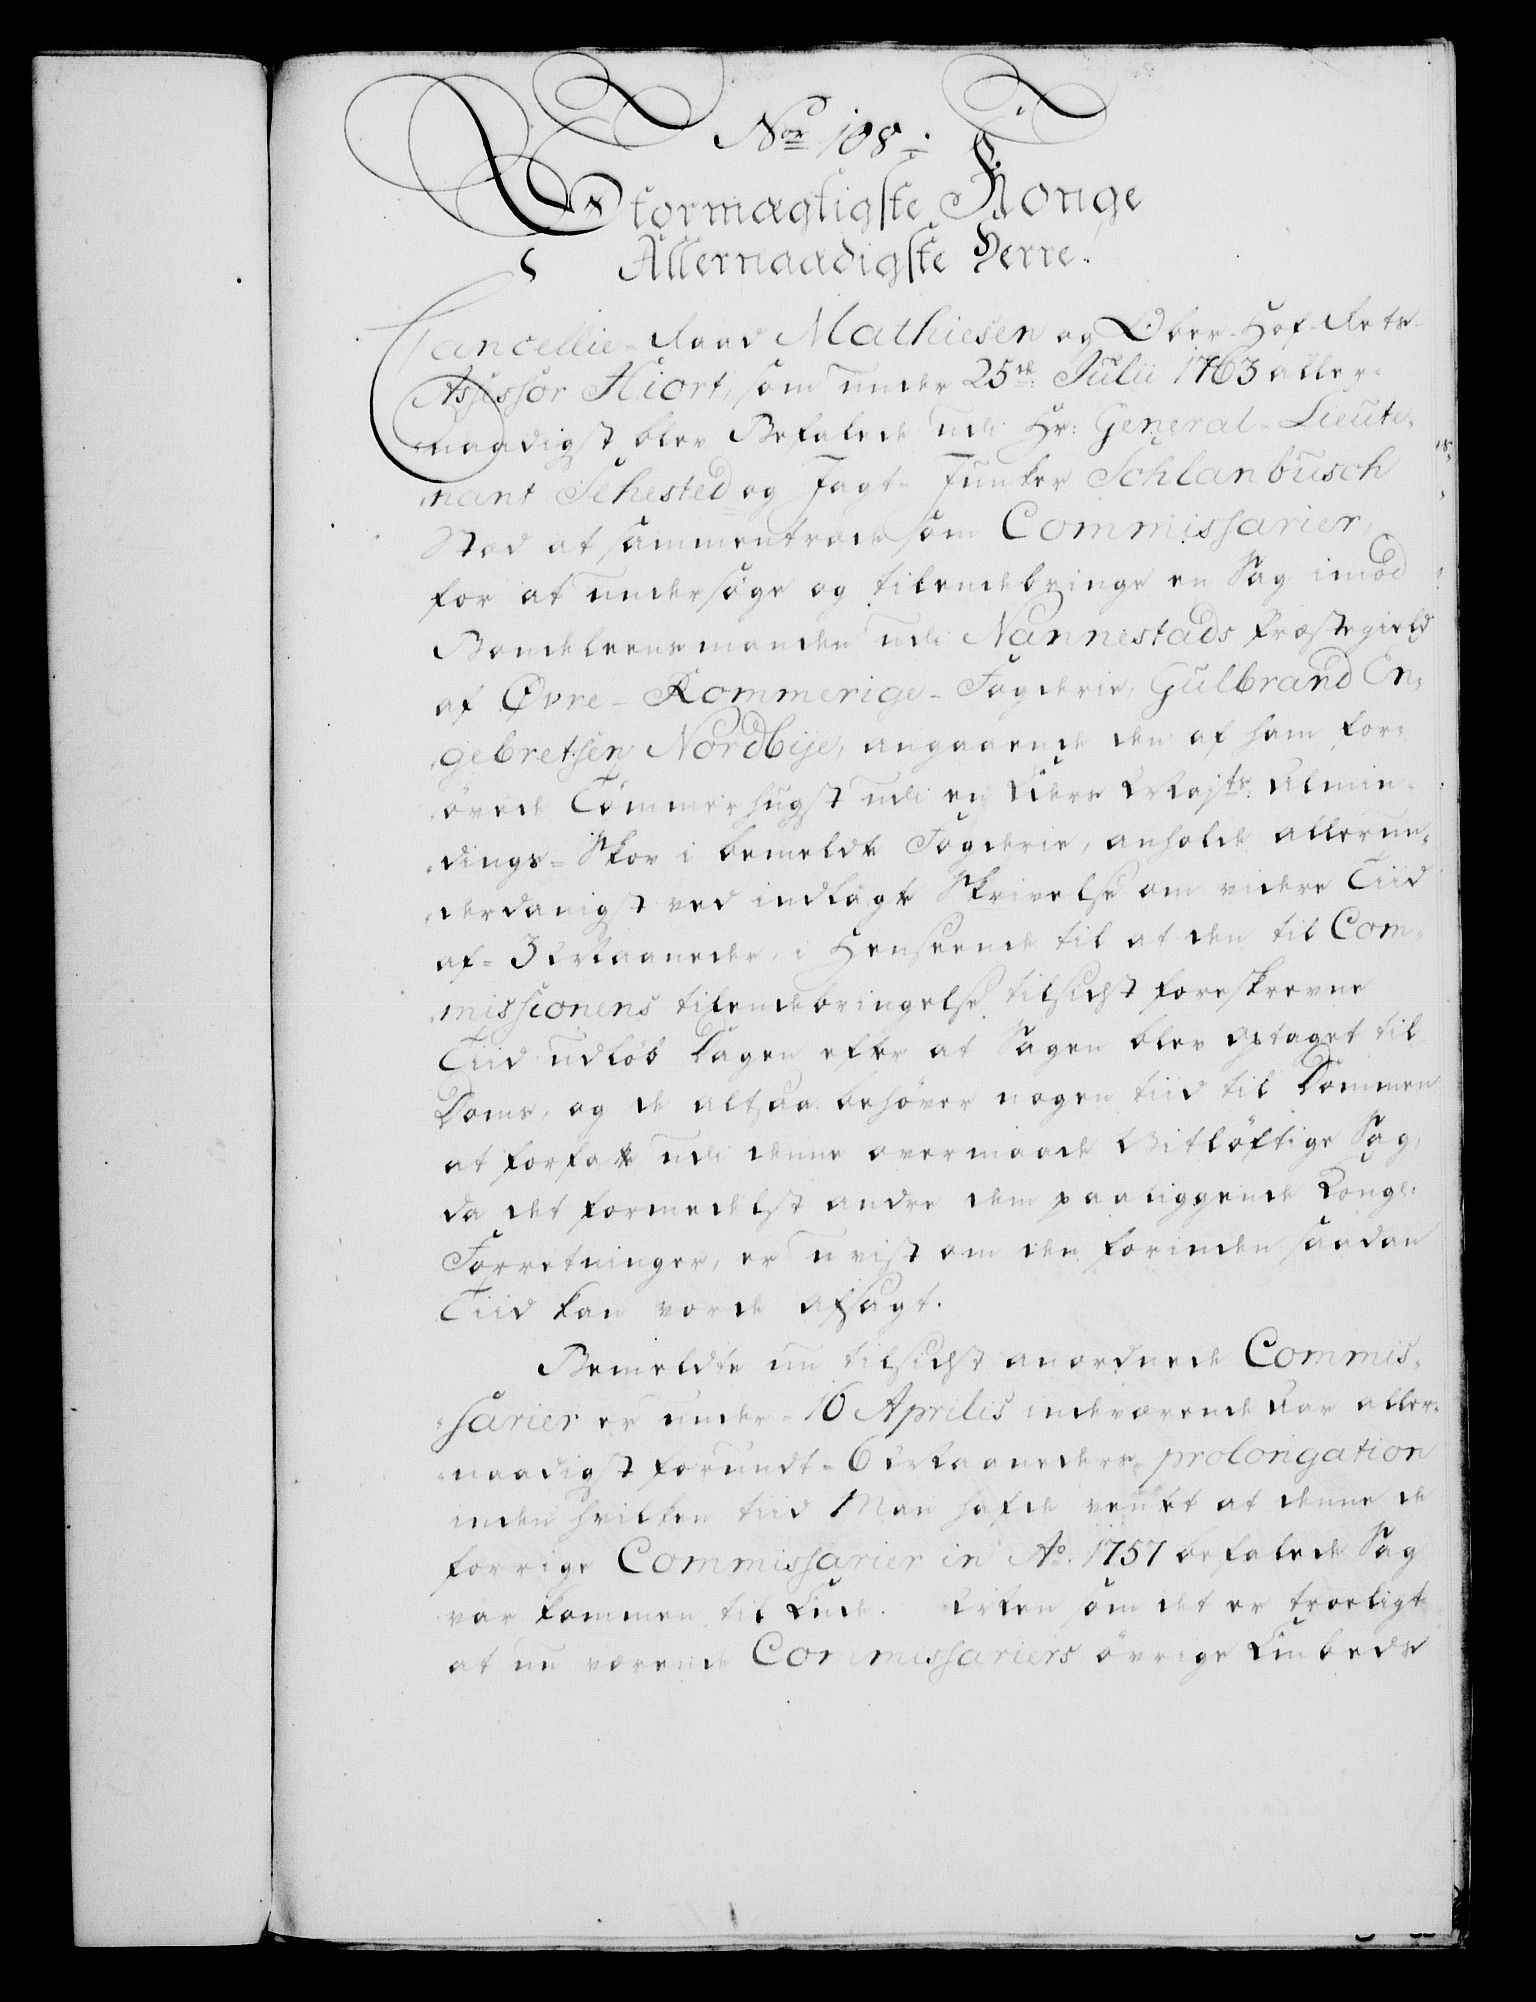 Nor 108.
Stormægtigste Konge
Allernaadigste Herre.
Cancellie-Raad Mathiesen og Ober-Hof-Rets-
Assessor Hiort, som under 25de Julii 1763 aller-
naadigst blev Befalede udi Hr: General-Lieute-
nant Sehested og Jagt-Junker Schlanbusch
Stæd at sammentræde som Commissarier,
for at undersøge og tilendebringe en Sag imod
Bondeleensmanden udi Nannestads Præstegield
af Øvre-Rommerige-Fogderie, Gulbrand En-
gebretsen Nordbije, angaaende den af ham for-
øvede Tømmerhugst udi en Eders Majts Almin-
dings-Skov i bemeldte Fogderie, anholde allerun-
derdanigst ved indlagte Skrivelse om videre Tiid
af 3 Maaneder, i Henseende til at den til Com-
missionens tilendebringelse tilsidst foreskrevne
Tiid udløb Dagen efter at Sagen blev optaget til
Doms, og de altsaa behøver nogen tiid til Dommen
at forfatte udi denne overmaade Vitløftige Sag,
da det formedelst andre dem paaliggende Kongl:
Forretninger, er uvist om den forinden saadan
Tiid kan vorde afsagt.
Bemeldte nu tilsidst anordnede Commis-
sarier er under 16 Aprilis indeværende Aar aller-
naadigst forundt 6 Maaneders prolongation
inden hvilken tiid Man hafde ventet at denne de
forrige Commissarier in Ao. 1757 befalede Sag
var kommen til Ende. Men som det er troeligt
at nu værende Commissariers øvrige Embeds